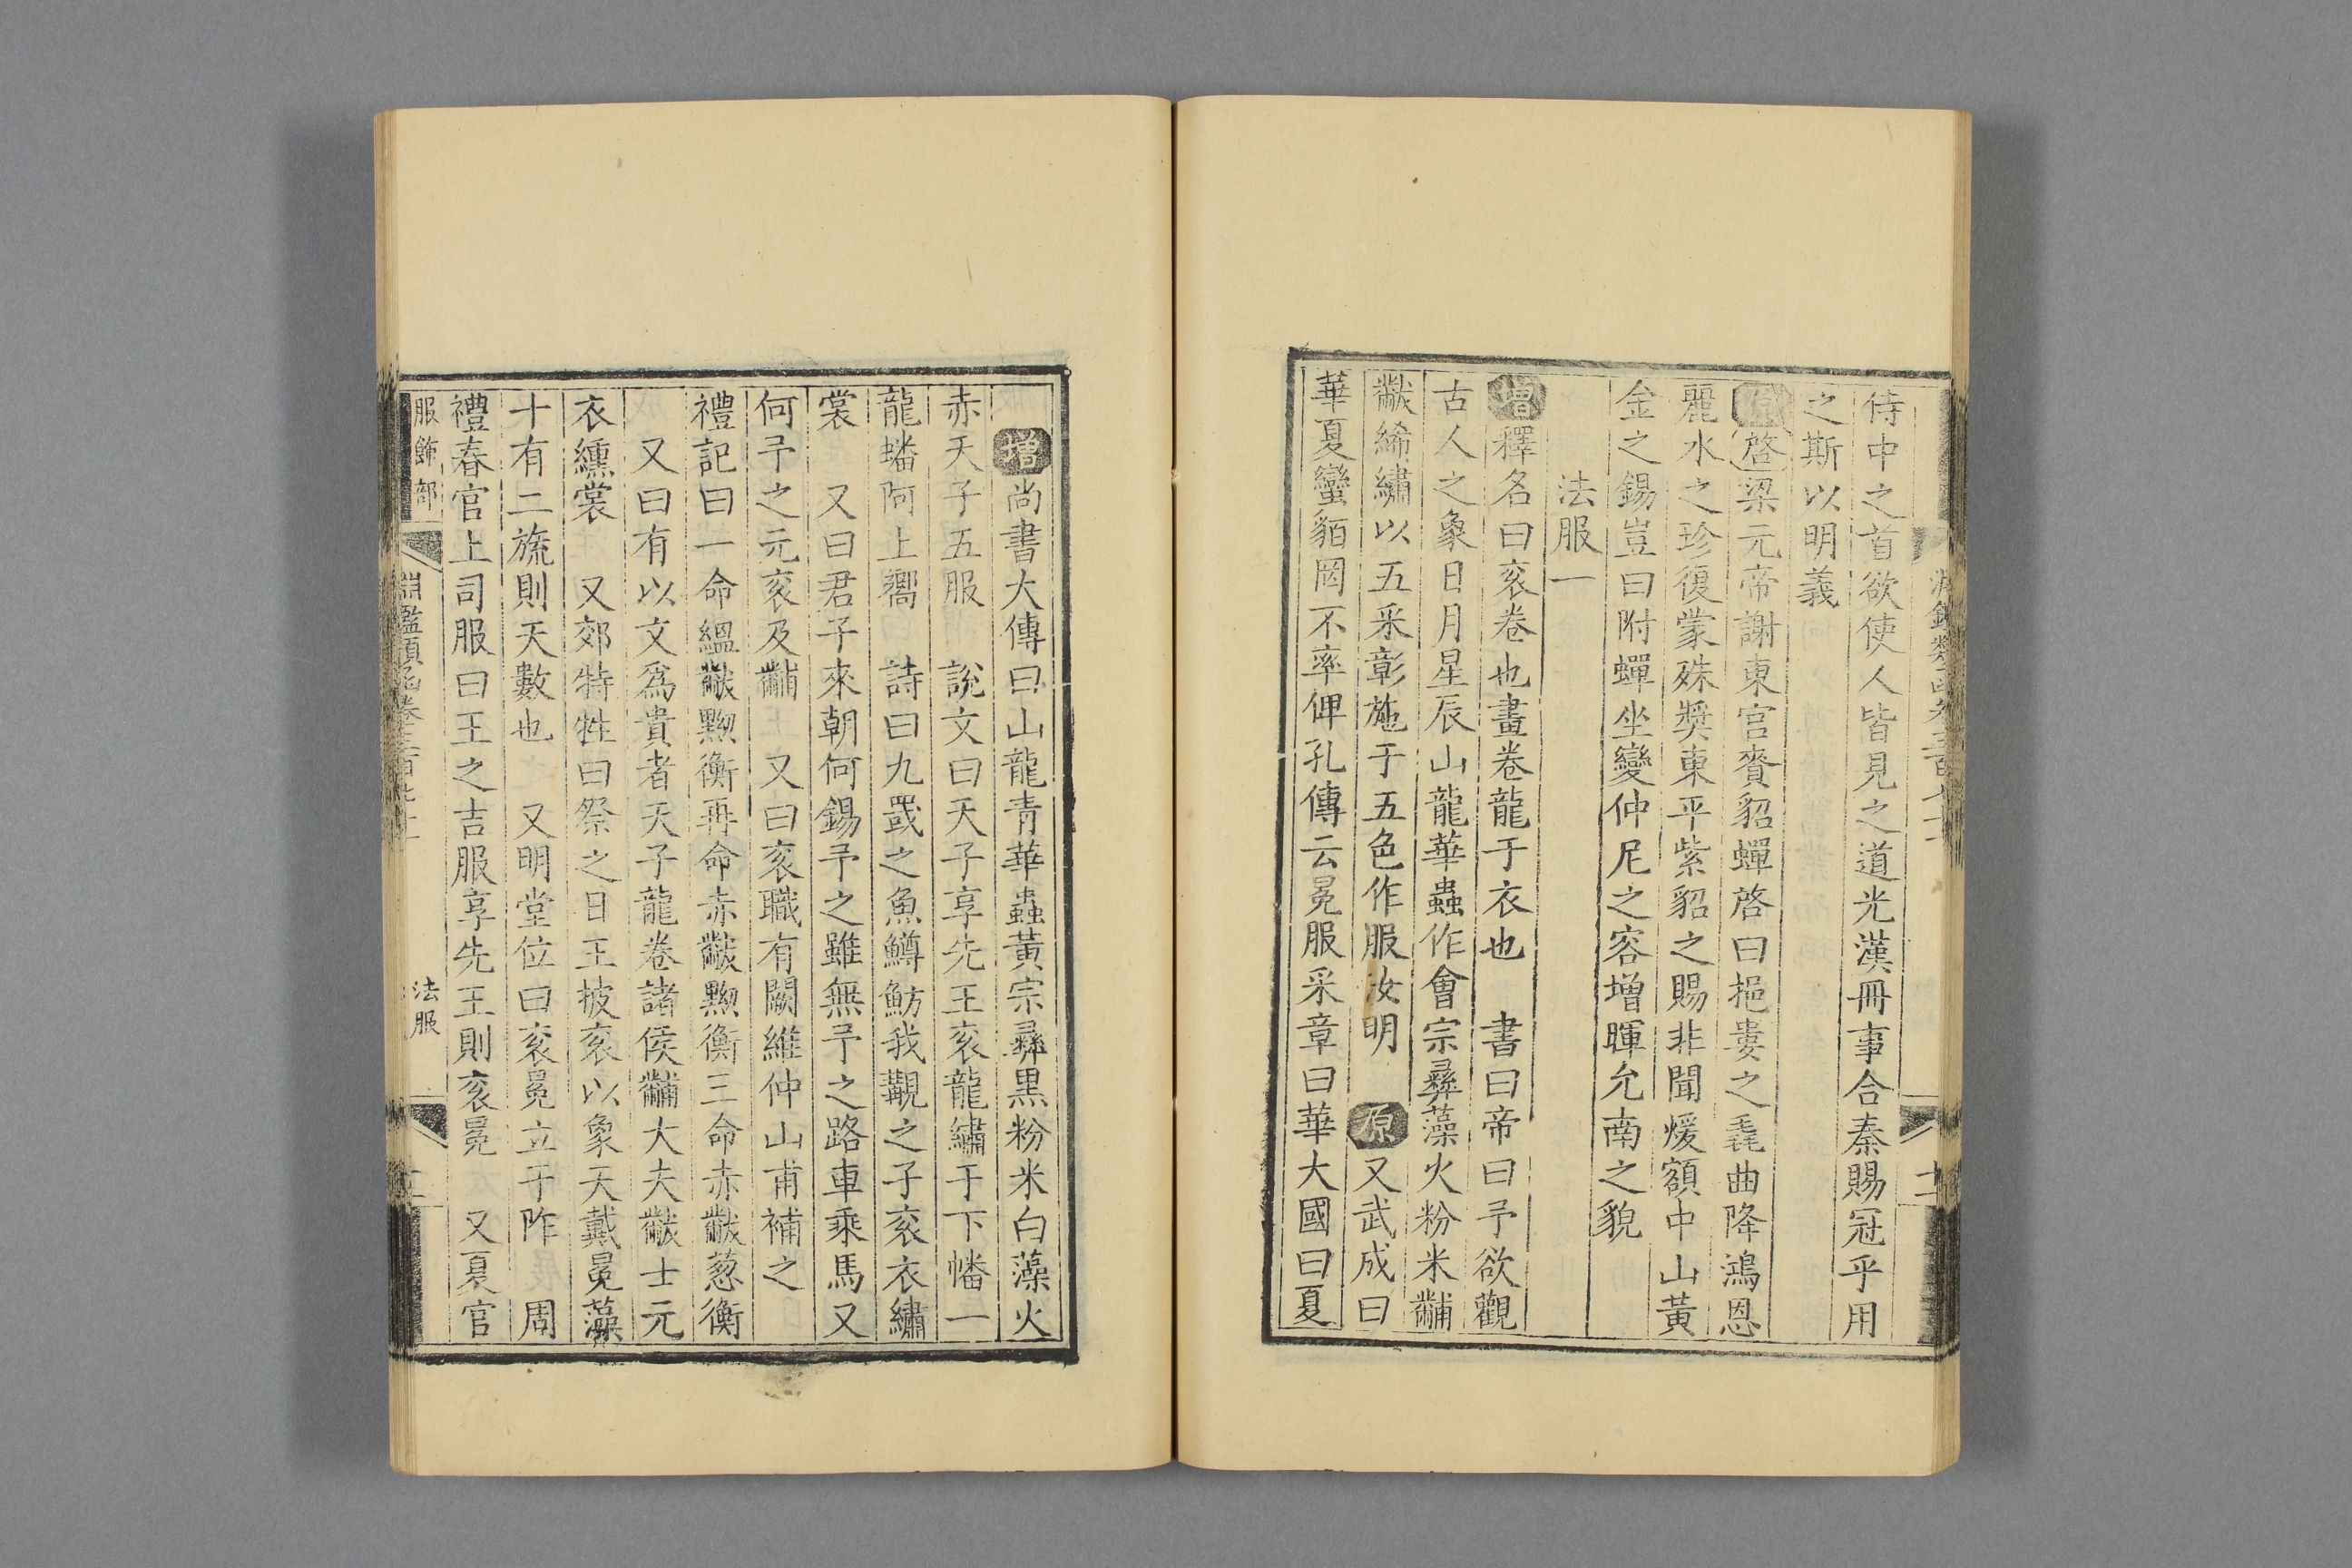 侍中之首欲使人皆見之道光漢冊事合秦賜冠乎用
之斯以明義
原啓梁元帝謝東宮賚貂蟬啓曰挹婁之毳曲降鴻恩
麗水之珍復蒙殊奬東平紫貂之賜非聞煖額中山黃
金之錫豈曰附蟬坐變仲尼之容增暉允南之貌
法服一
增釋名曰衮卷也畫卷龍于衣也　書曰帝曰予欲觀
古人之象日月星辰山龍華蟲作會宗彝藻火粉米黼
黻絺繡以五采彰施于五色作服汝明　原又武成曰
華夏蠻貊罔不率俾孔傳云冕服采章曰華大國曰夏
增尚書大傳曰山龍青華蟲黃宗彝黒粉米白藻火
赤天子五服　說文曰天子享先王衮龍繡于下幡一
龍蟠阿上嚮　詩曰九罭之魚鱒魴我覯之子衮衣繡
裳　又曰君子來朝何錫予之雖無予之路車乘馬又
何予之元衮及黼　又曰衮職有闕維仲山甫補之
禮記曰一命縕黻黝衡再命赤黻黝衡三命赤黻葱衡
又曰有以文爲貴者天子龍卷諸侯黼大夫黻士元
衣纁裳　又郊特牲曰祭之日王披衮以象天戴冕藻
十有二旒則天數也　又明堂位曰衮冕立于阼　周
禮春官上司服曰王之吉服享先王則衮冕　又夏官
服飾部　淵鑑類函卷三百七十　法服